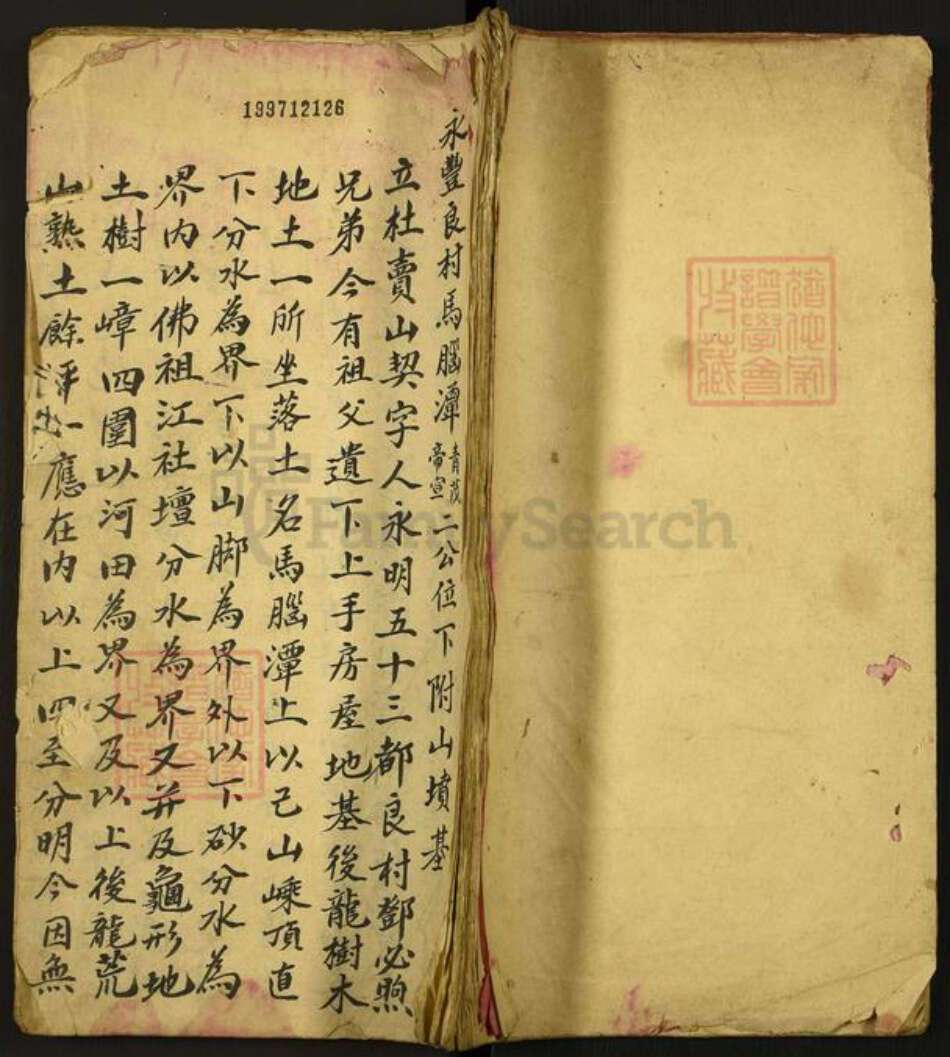 199712126
永豐良村馬腦潭青茂帝宣二公位下附山墳基
立杜賣山契字人永明五十三都良村鄧必煦
兄弟今有祖父遺下上手房屋地基後龍樹木
地土一所坐落土名馬腦潭上以己山嵊頂直
下分水為界下以山脚為界外以下砂分水為
界内以佛祖江社壇分水為界又并及龜形地
土樹一嶂四圍以河田為界又及以上後龍荒
山熟土餘坪一應在内以上四至分明今因無
FamilySearch